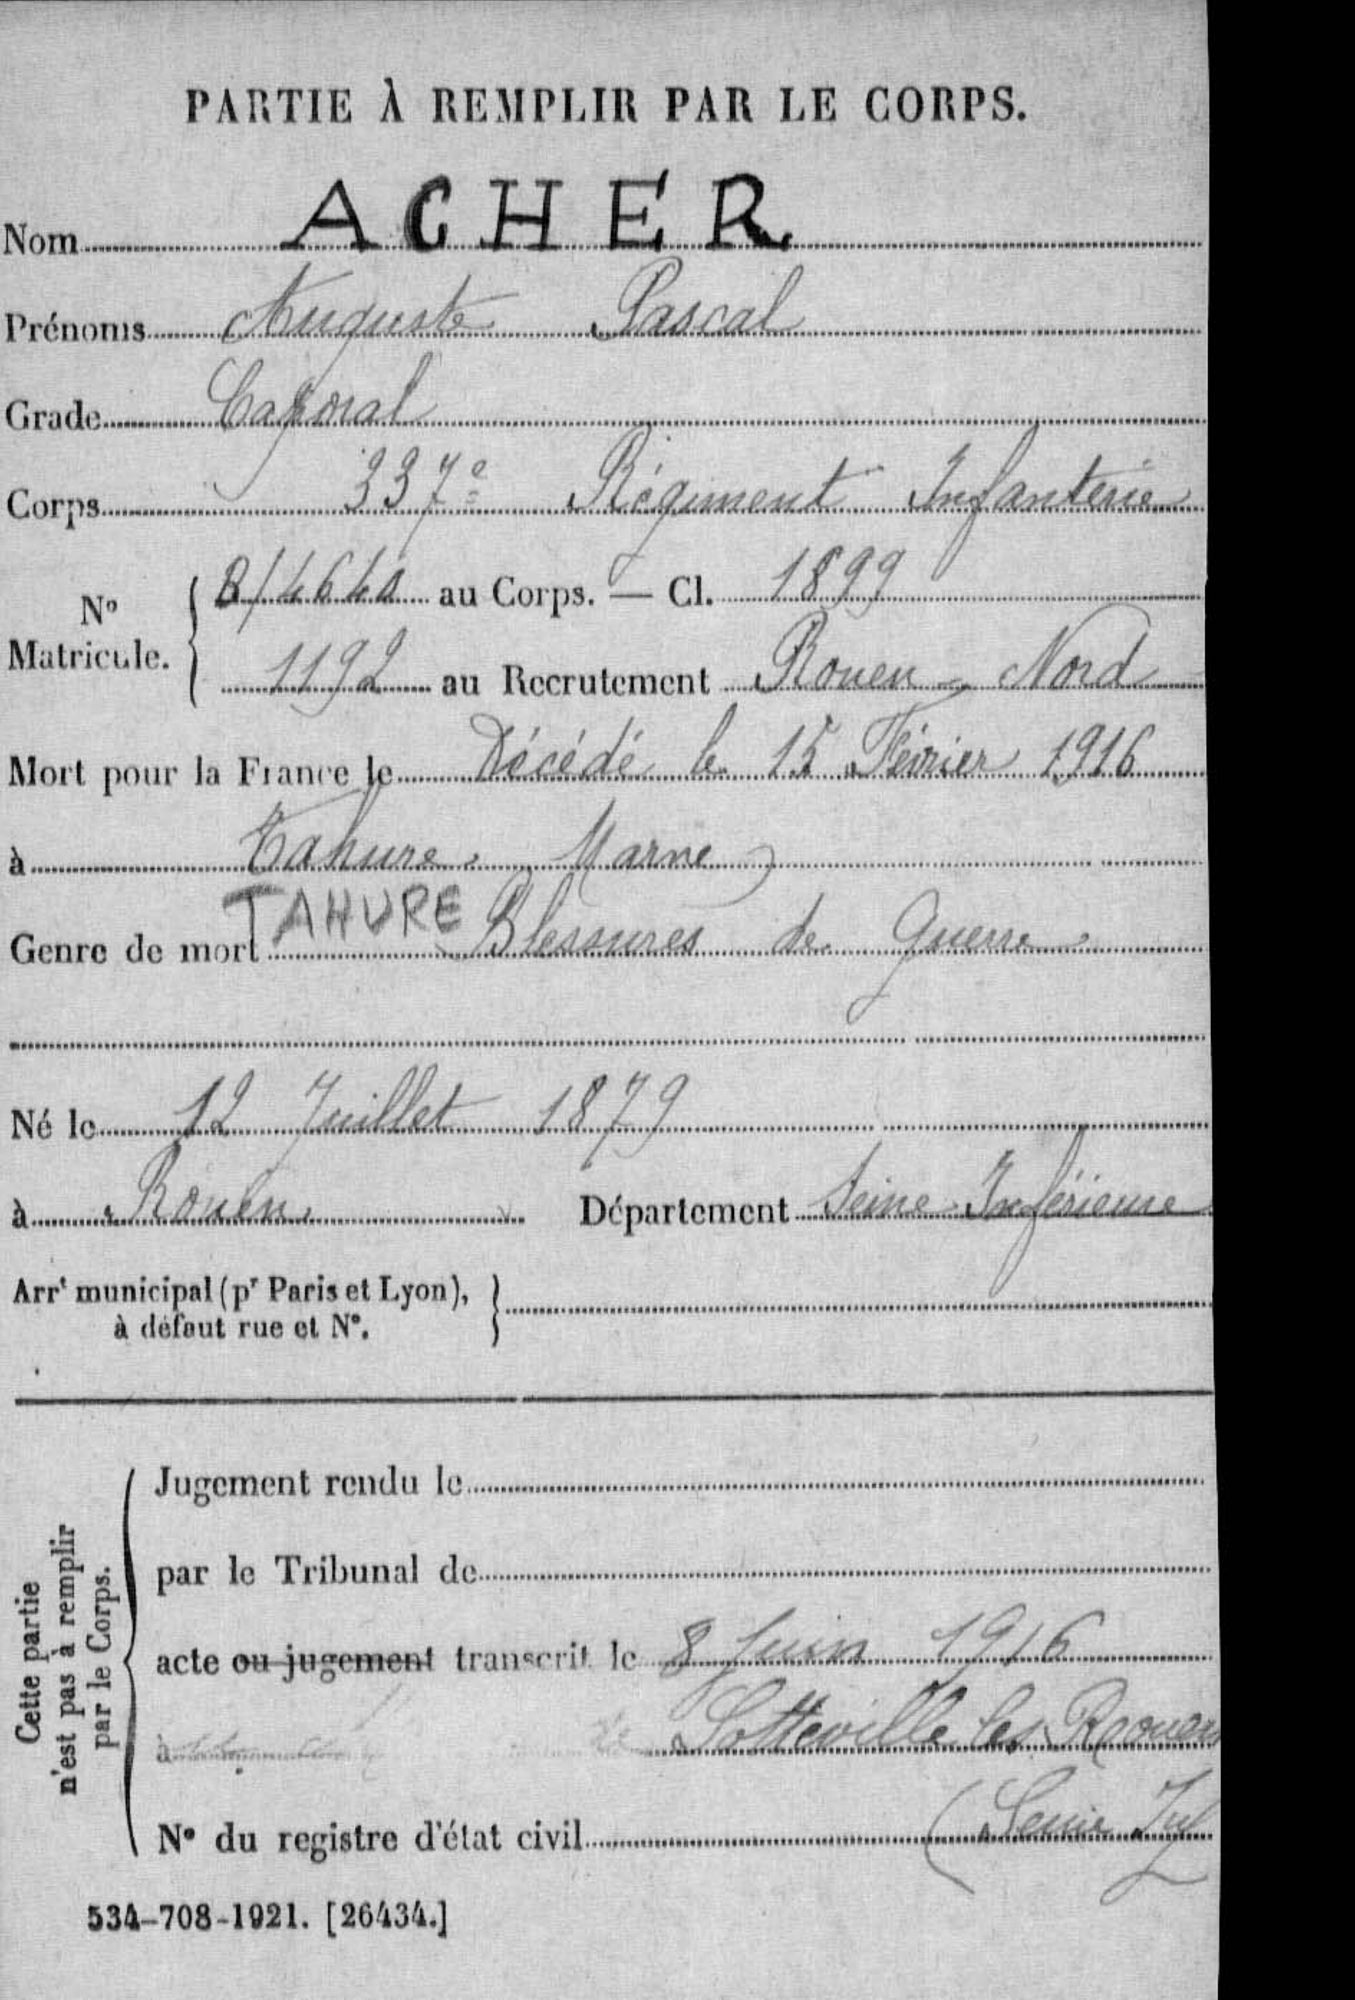 PARTIE À REMPLIR PAR LE CORPS.
Nom ACHER
Prénoms Auguste Pascal
Grade Caporal
Corps 337e Régiment Infanterie
No Matricule. B/4640 au Corps. — Cl. 1899
1192 au Recrutement Rouen - Nord
Mort pour la France le Décédé le 15 Février 1916
à Tahure. Marne
TAHURE
Genre de mort Blessures de Guerre
Né le 12 Juillet 1879
à Rouen Département Seine-Inférieure
Arrt municipal (pr Paris et Lyon),
à défaut rue et No.
Cette partie
n'est pas à remplir
par le Corps.
Jugement rendu le
par le Tribunal de
acte ou jugement transcrit le 8 Juin 1916
à Sotteville les Rouen
(Seine Inf
No du registre d'état civil
534-708-1921. [26434.]